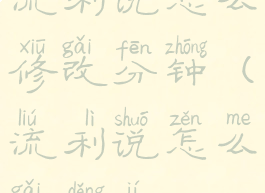 流利说怎么
xiū gǎi fēn zhōng
修改分钟（
liú lì shuō zěn me
流利说怎么
gǎi děng jí